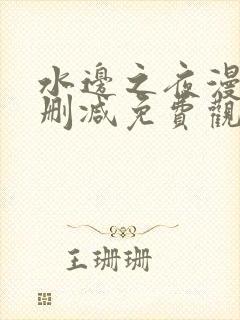 水邊之夜漫
刪減免費觀
王珊珊